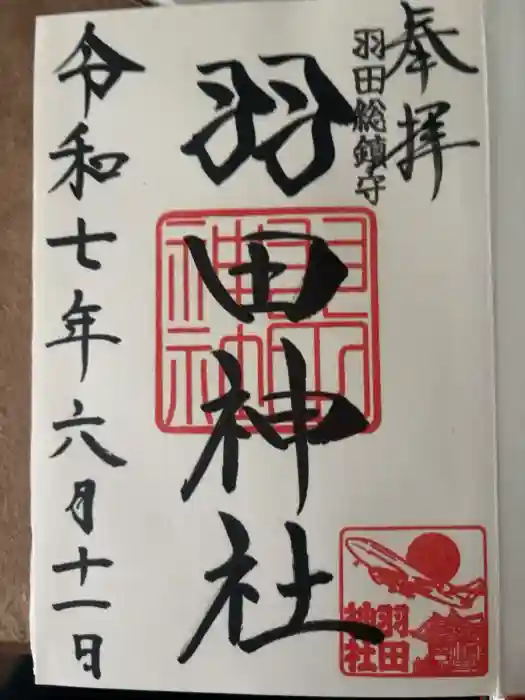 奉拝
羽田総鎮守
羽田神社
羽田神社
令和七年六月十一日
羽田
神社